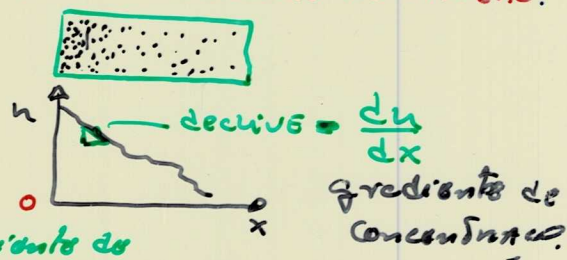 n
declive = dn/dx
gradiente de
concentração.
0
x